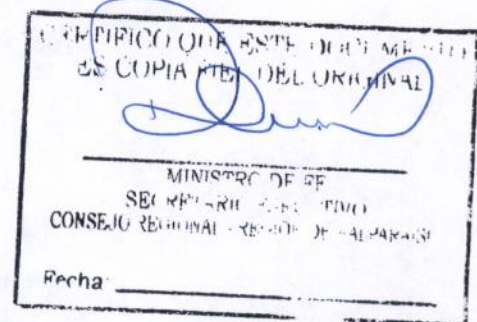 CERTIFICO QUE ESTE DOCUMENTO
ES COPIA FIEL DEL ORIGINAL
MINISTRO DE FE
SECRETARIO EJECUTIVO
CONSEJO REGIONAL - REGION DE VALPARAISO
Fecha: